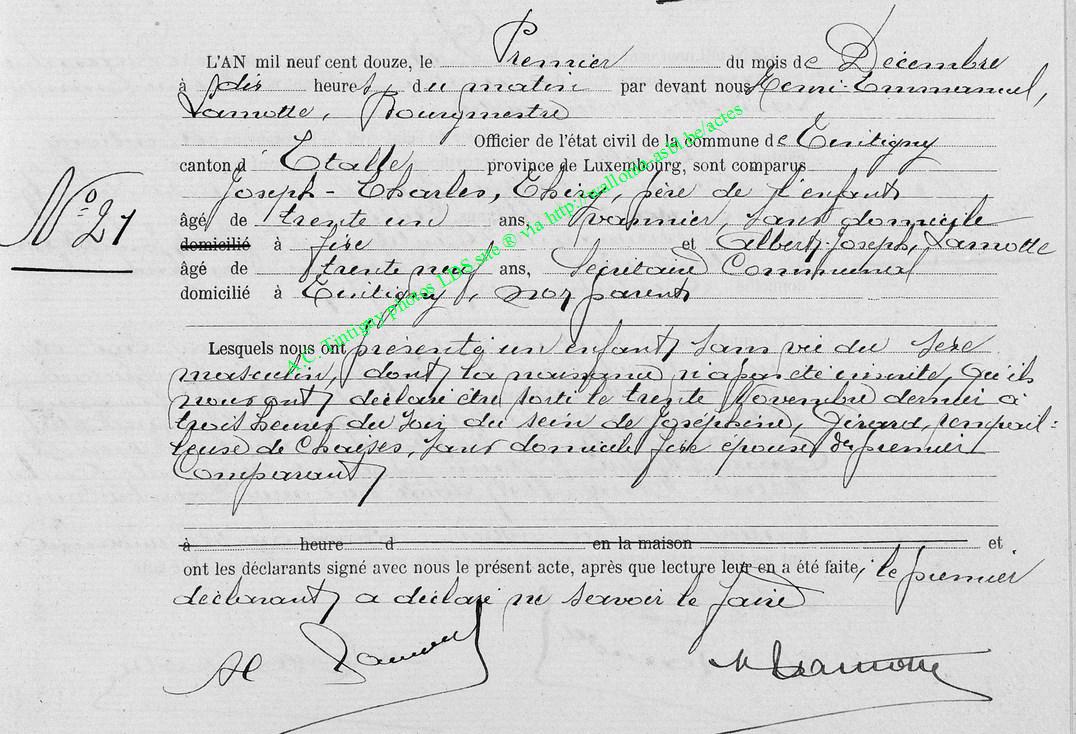 L'AN mil neuf cent douze, le Premier du mois de Décembre
à dix heures, du matin par devant nous Henri-Emmanuel,
Lamotte, Bourgmestre
Officier de l'état civil de la commune de Tintigny
canton d'Etalle province de Luxembourg, sont comparus
Joseph-Charles, Thiry, père de l'enfant
N° 21
âgé de trente un ans, vannier, sans domicile
domicilié à fixe et Albert-Joseph, Lamotte
âgé de trente neuf ans, Secrétaire Communal
domicilié à Tintigny, non parent
Lesquels nous ont présenté un enfant sans vie du sexe
masculin, dont la naissance n'a pas été inscrite, qu'ils
nous ont déclaré être sorti le trente Novembre dernier à
trois heures du soir du sein de Joséphine, Girard, rempail:
leuse de Chaises, sans domicile fixe épouse du premier
Comparant
à heure d en la maison et
ont les déclarants signé avec nous le présent acte, après que lecture leur en a été faite, le premier
déclarant a déclaré ne savoir le faire
A Lamotte
H Lamotte
A.C. Tintigny photos LDS site ® via http://wallonia-asbl.be/actes